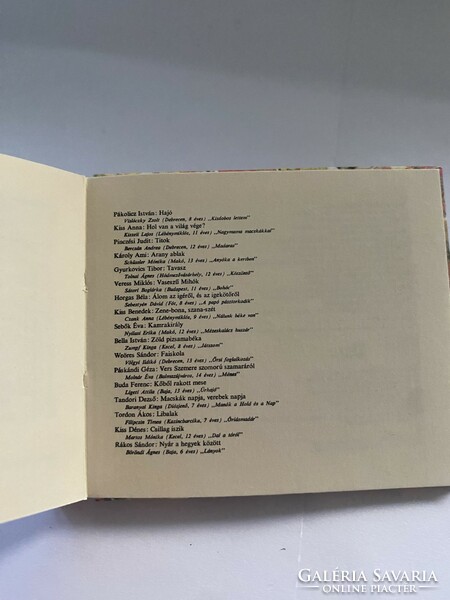 Pákolicz István: Hajó
Vislóczky Zsolt (Debrecen, 8 éves)
Kiss Anna: Hol van a világ vége?
Kisteli Lajos (Lébénymiklós, 13 éves) „Nagymama macskákkal”
Pinczési Judit: Titok
Barcsán Andrea (Debrecen, 12 éves) „Madaras”
Károly Ami: Arany ablak
Schässler Mónika (Makó, 13 éves) „Anyóka a kertben”
Gyurkovics Tibor: Tavasz
Tolnai Ágnes (Hódmezővásárhely, 12 éves)
Veress Miklós: Vasszélű Mihók
Sásori Boglárka (Budapest, 11 éves)
Horgas Béla: Álom az igéről, és az igekötőről
Sebestyén Dávid (Fót, 8 éves) „A papá pásztorkodik”
Kiss Benedek: Zene-bona, szana-szét
Csonk Anna (Lébénymiklós, 9 éves) „Nálunk béke van”
Sebők Éva: Kamrakirály
Nyilasi Erika (Makó, 12 éves) „Mézeskalács huszár”
Bella István: Zöld pizsamabéka
Zsengf Kinga (Kecel, 8 éves) „Játszom”
Weöres Sándor: Faiskola
Völgyi Ildikó (Debrecen, 13 éves) „Őszi foglalkozás”
Páskándi Géza: Vers Szemere szomorú szamaráról
Molnár Éva (Balmazújváros, 14 éves) „Mének”
Buda Ferenc: Kőből rakott mese
Ligeti Attila (Baja, 13 éves) „Űrhajó”
Tandori Dezső: Macskák napja, verebek napja
Baranyai Kinga (Diósjenő, 7 éves) „Manók a Hold és a Nap”
Tordon Ákos: Libalak
Filipczin Tímea (Kazincbarcika, 7 éves) „Óriásmadár”
Kiss Dénes: Csillag iszik
Martus Mónika (Kecel, 12 éves) „Dal a tóról”
Rákos Sándor: Nyár a hegyek között
Böröndi Ágnes (Baja, 6 éves) „Lányok”
GALÉRIA SAVARIA
ONLINE PIACTÉR